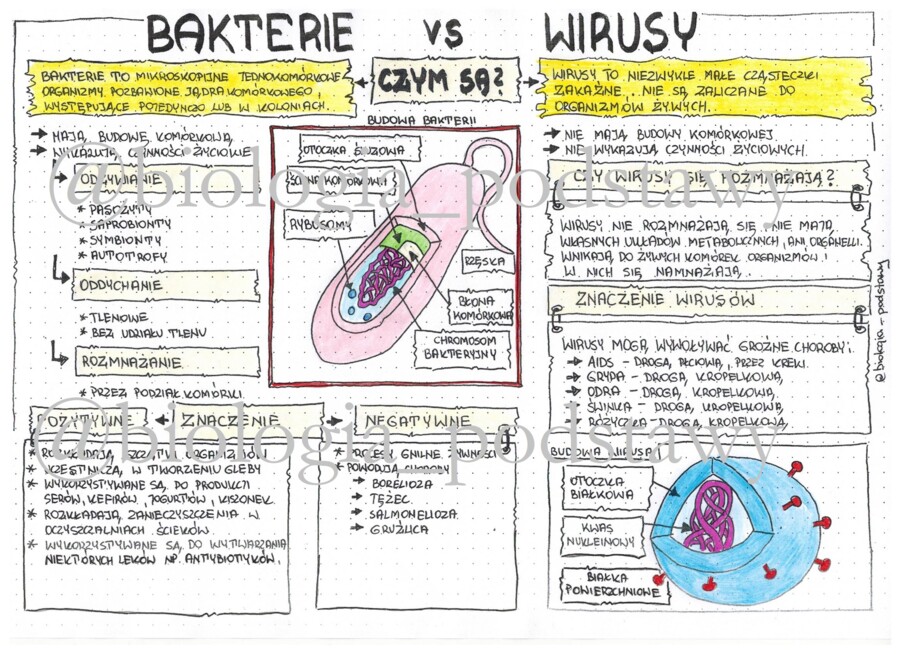 BAKTERIE VS WIRUSY
CZYM SĄ?
BAKTERIE TO MIKROSKOPIJNE JEDNOKOMÓRKOWE
ORGANIZMY, POZBAWIONE JĄDRA KOMÓRKOWEGO,
WYSTĘPUJĄCE POJEDYNCZO LUB W KOLONIACH.
→ MAJĄ BUDOWĘ KOMÓRKOWĄ
→ WYKAZUJĄ CZYNNOŚCI ŻYCIOWE
ODŻYWIANIE
* PASOŻYTY
* SAPROBIONTY
* SYMBIONTY
* AUTOTROFY
ODDYCHANIE
* TLENOWE
* BEZ UDZIAŁU TLENU
ROZMNAŻANIE
* PRZEZ PODZIAŁ KOMÓRKI
BUDOWA BAKTERII
OTOCZKA ŚLUZOWA
ŚCIANA KOMÓRKOWA
RYBUSOMY
RZĘSKA
BŁONA
KOMÓRKOWA
CHROMOSOM
BAKTERYJNY
POZYTYWNE ← ZNACZENIE → NEGATYWNE
* ROZKŁADAJĄ SZCZĄTKI ORGANIZMÓW
* UCZESTNICZĄ W TWORZENIU GLEBY
* WYKORZYSTYWANE SĄ DO PRODUKCJI
SERÓW, KEFIRÓW, JOGURTÓW, KISZONEK
* ROZKŁADAJĄ ZANIECZYSZCZENIA W
OCZYSZCZALNIACH ŚCIEKÓW.
* WYKORZYSTYWANE SĄ DO WYTWARZANIA
NIEKTÓRYCH LEKÓW NP. ANTYBIOTYKÓW.
* PROCESY GNILNE ŻYWNOŚCI
* POWODUJĄ CHOROBY
→ BORELIOZA
→ TĘŻEC
→ SALMONELLOZA
→ GRUŹLICA
WIRUSY TO NIEZWYKLE MAŁE CZĄSTECZKI
ZAKAŹNE. NIE SĄ ZALICZANE DO
ORGANIZMÓW ŻYWYCH.
→ NIE MAJĄ BUDOWY KOMÓRKOWEJ
→ NIE WYKAZUJĄ CZYNNOŚCI ŻYCIOWYCH.
CZY WIRUSY SIĘ ROZMNAŻAJĄ?
WIRUSY NIE ROZMNAŻAJĄ SIĘ, NIE MAJĄ
WŁASNYCH UKŁADÓW METABOLICZNYCH, ANI ORGANELLI.
WNIKAJĄ DO ŻYWYCH KOMÓREK ORGANIZMÓW I
W NICH SIĘ NAMNAŻAJĄ.
ZNACZENIE WIRUSÓW
WIRUSY MOGĄ WYWOŁYWAĆ GROŹNE CHOROBY:
→ AIDS - DROGĄ PŁCIOWĄ, PRZEZ KREW
→ GRYPA - DROGĄ KROPELKOWĄ
→ ODRA - DROGĄ KROPELKOWĄ
→ ŚWINKA - DROGĄ KROPELKOWĄ
→ RÓŻYCZKA - DROGĄ KROPELKOWĄ
BUDOWA WIRUSA
OTOCZKA
BIAŁKOWA
KWAS
NUKLEINOWY
BIAŁKA
POWIERZCHNIOWE
@biologia_podstawy
@biologia_podstawy
@biologia_podstawy